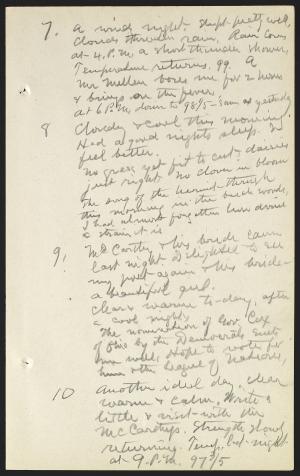 7. A windy night. Slept pretty well,
clouds threaten rain. Rain comes
at 4 P.M. a short thunder shower,
Temperature returns. 99. A
Mr Mellen bores me for 2 hours
& brings on the fever.
at 6 P.M. down to 98 3/5 - same as yesterday
8 Cloudy & cool this morning.
Had a good nights sleep.
feel better.
No grass yet fit to cut; daisies
just right. No clover in bloom
The song of the hermit thrush
this morning in the beech woods,
I had almost forgotten how divine
a strain it is
9, McCarthy & his bride came
last night. Delighted to see
my poet again & his bride -
a beautiful girl.
Clear & warmer to-day, after
a cool night.
The nomination of Gov. Cox
of Ohio by the Democrats suits
me well. Hope to vote for
him & the League of Nations,
10 Another ideal day, clear
warm & calm. Write a
little & visit with the
McCarthys. Strength slowly
returning. Temp. last night
at 9 P.M. 97 3/5